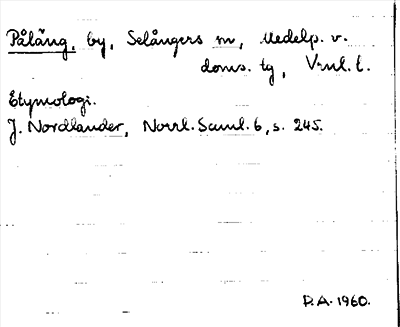 Påläng, by, Selångers sn, Medelp. v.
doms. tg, V:nl. l.
Etymologi.
J. Nordlander, Norrl. Saml. 6, s. 245.
P.A. 1960.